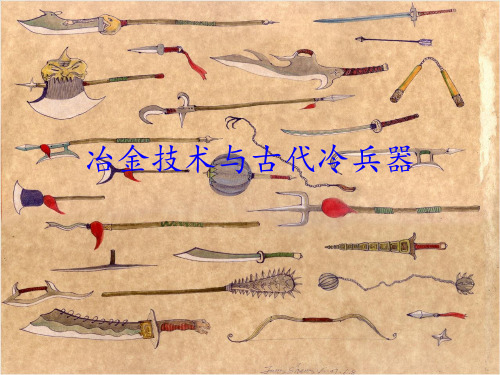 冶金技术与古代冷兵器